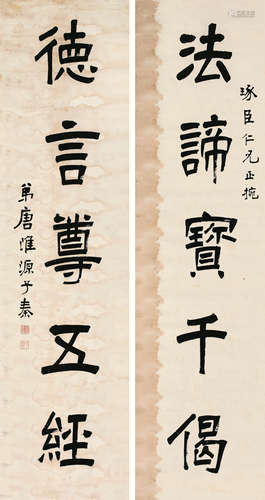 法諦寶千偈
琢臣仁兄正捥
德言尊五經
弟唐淮源子秦